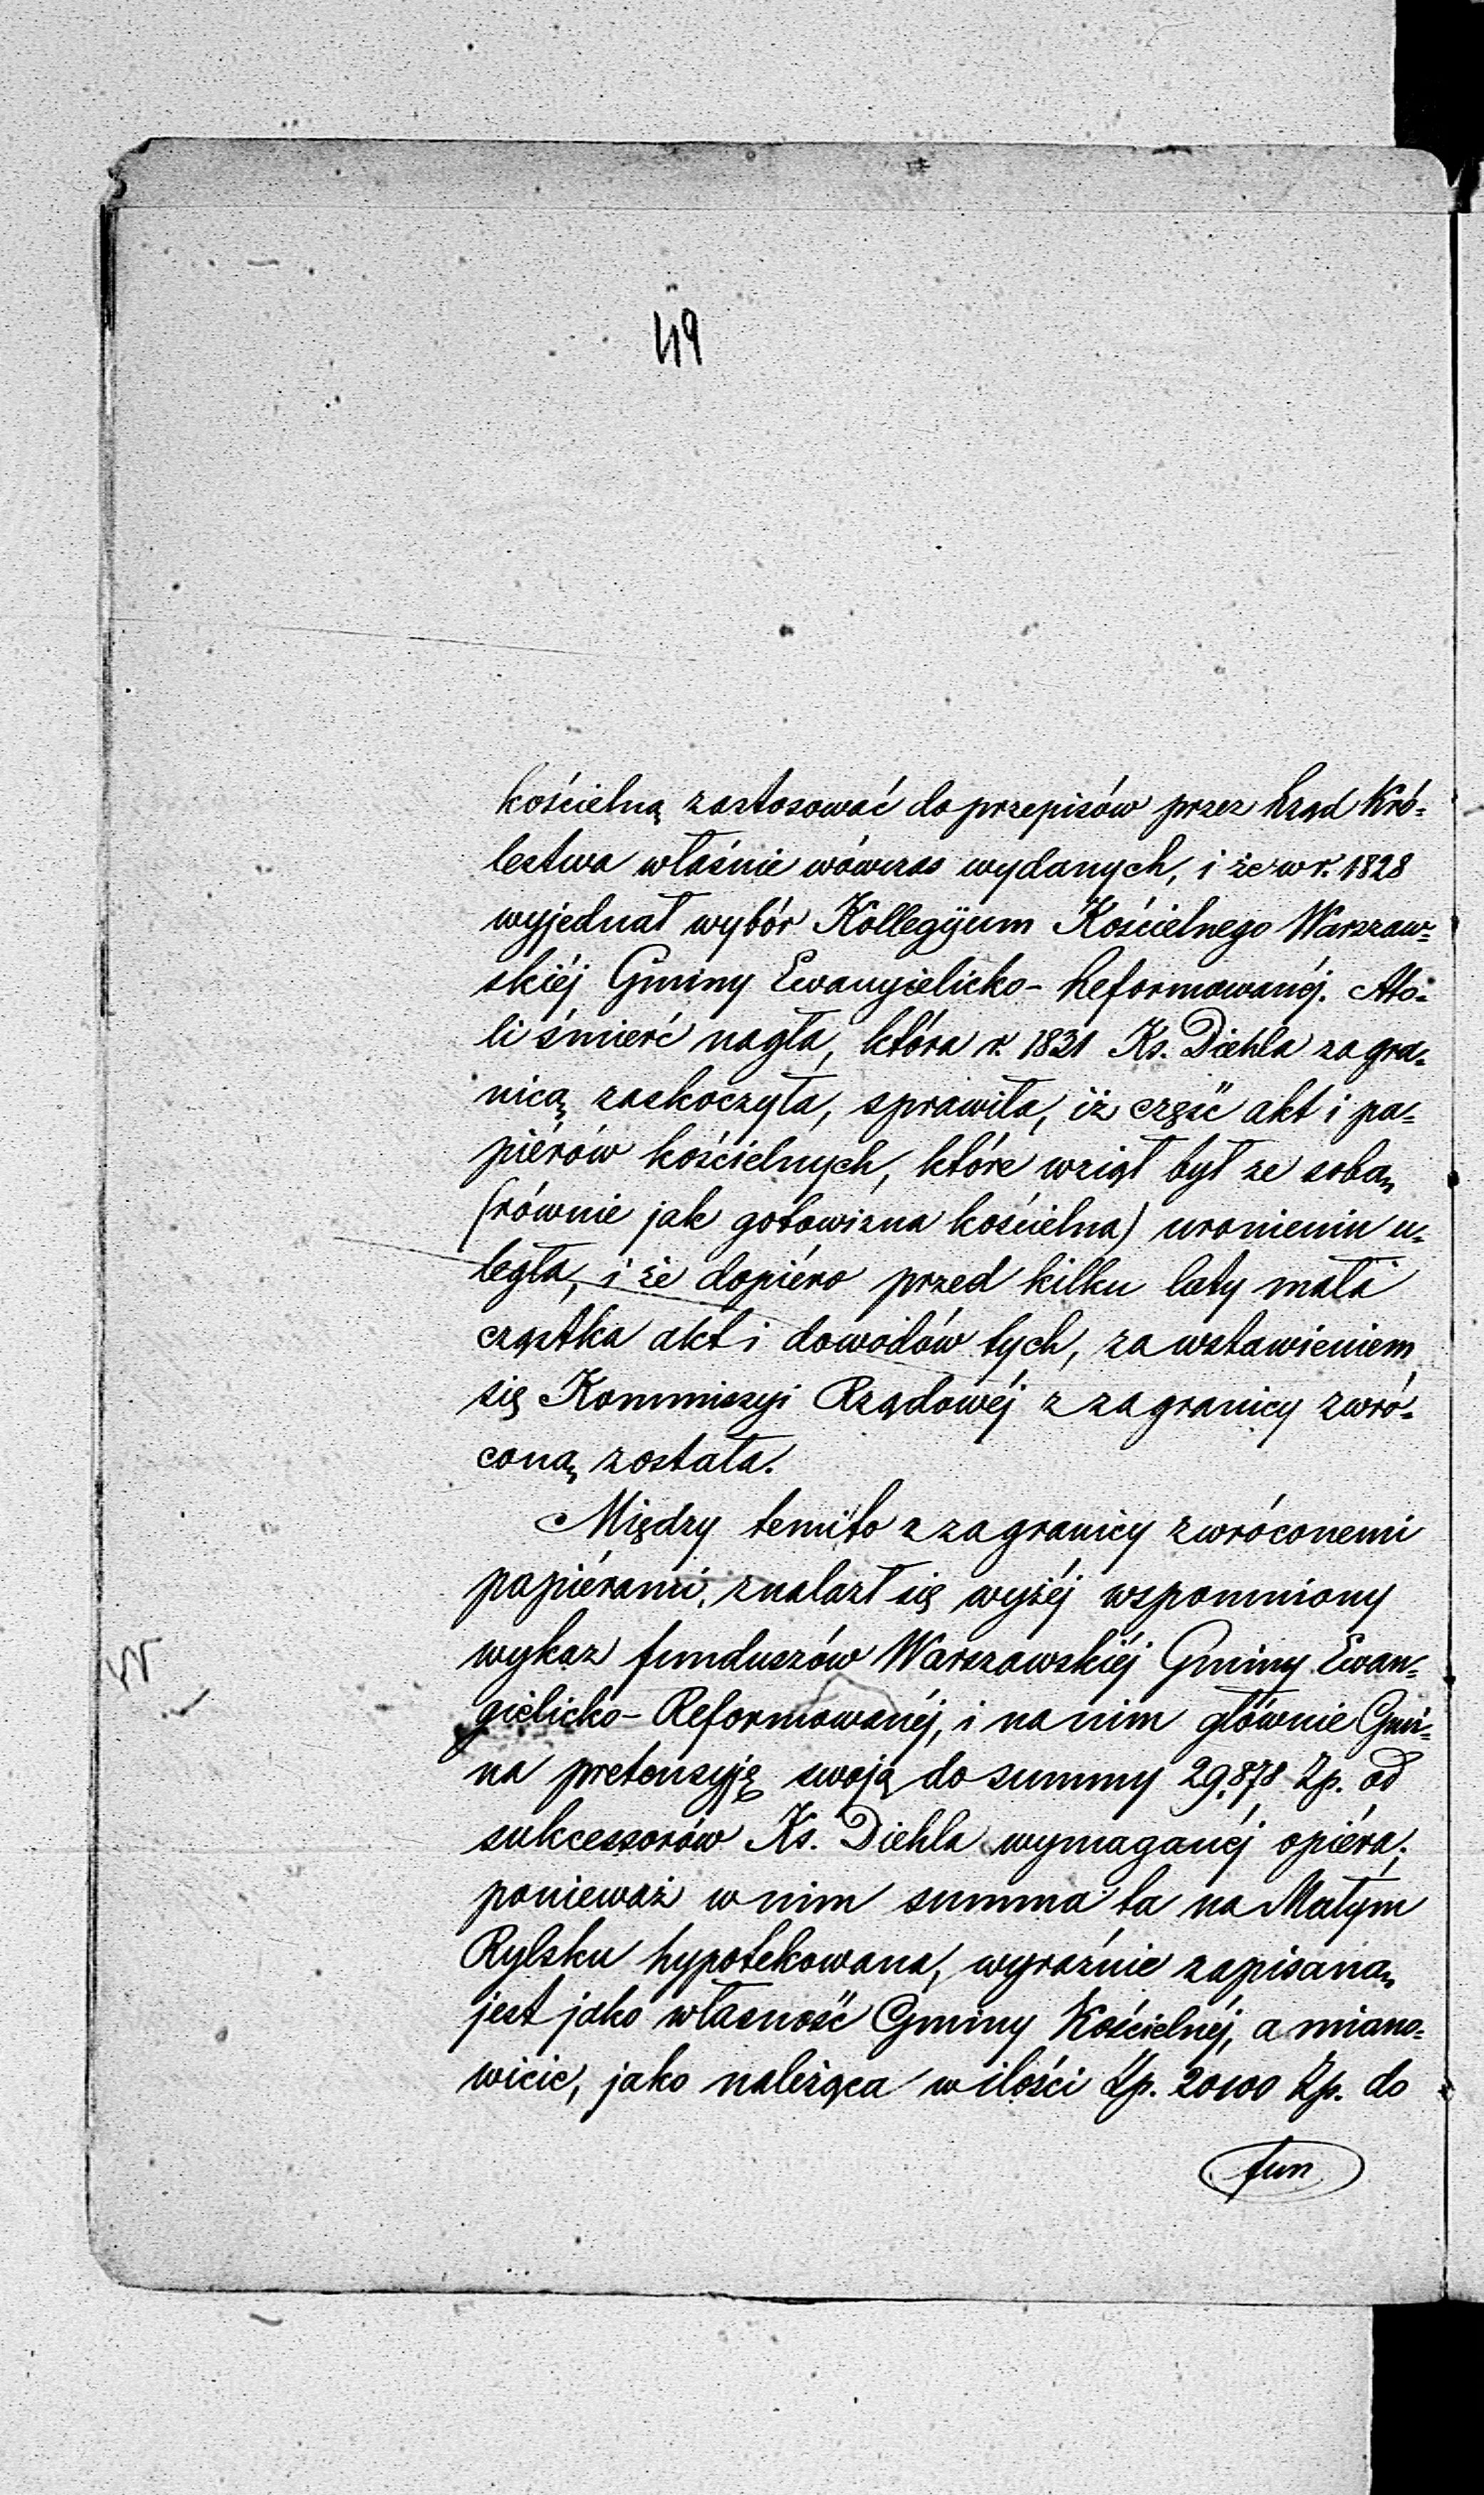 49
kościelną zastosować do przepisów przez Rząd Kró-
lestwa właśnie wówczas wydanych, i że w r. 1828
wyjednał wybór Kollegijum Kościelnego Warszaw-
skiéj Gminy Ewangielicko-Reformowanéj. Ato-
li śmierć nagła, która r. 1831 Ks. Diehla za gra-
nicą zaskoczyła, sprawiła, iż część akt i pa-
piérów kościelnych, które wziął był ze sobą
(równie jak gotowizna kościelna) uronieniu u-
legła, i że dopiéro przed kilku laty mała
cząstka akt i dowodów tych, za wstawieniem
się Kommiszyi Rządowéj z zagranicy zwró-
coną została.
Między temito z zagranicy zwróconemi
papiérami, znalazł się wyżéj wspomniony
wykaz funduszów Warszawskiéj Gminy Ewan-
gielicko-Reformowanéj, i na nim głównie Gmi-
na pretensyję swoją do summy 29,878 Zp. od
sukcessorów Ks. Diehla wymaganéj opiéra;
ponieważ w nim summa ta na Małym
Rylsku hypotekowana, wyraźnie zapisaną
jest jako własność Gminy Kościelnéj, a miano-
wicie, jako należąca w ilości Zp. 20100 Zp. do
fun